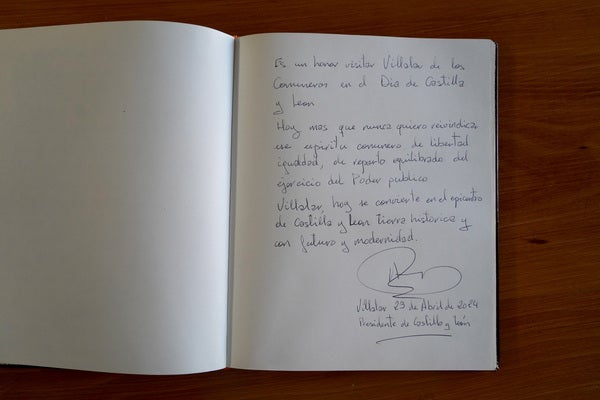 Es un honor visitar Villalar de los
Comuneros en el Dia de Castilla
y Leon
Hoy mas que nunca quiero reivindicar
ese espiritu comunero de libertad
igualdad, de reparto equilibrado del
ejercicio del Poder publico
Villalar, hoy se convierte en el epicentro
de Castilla y Leon tierra historica y
con futuro y modernidad.
Villalar 23 de Abril de 2024
Presidente de Castilla y León